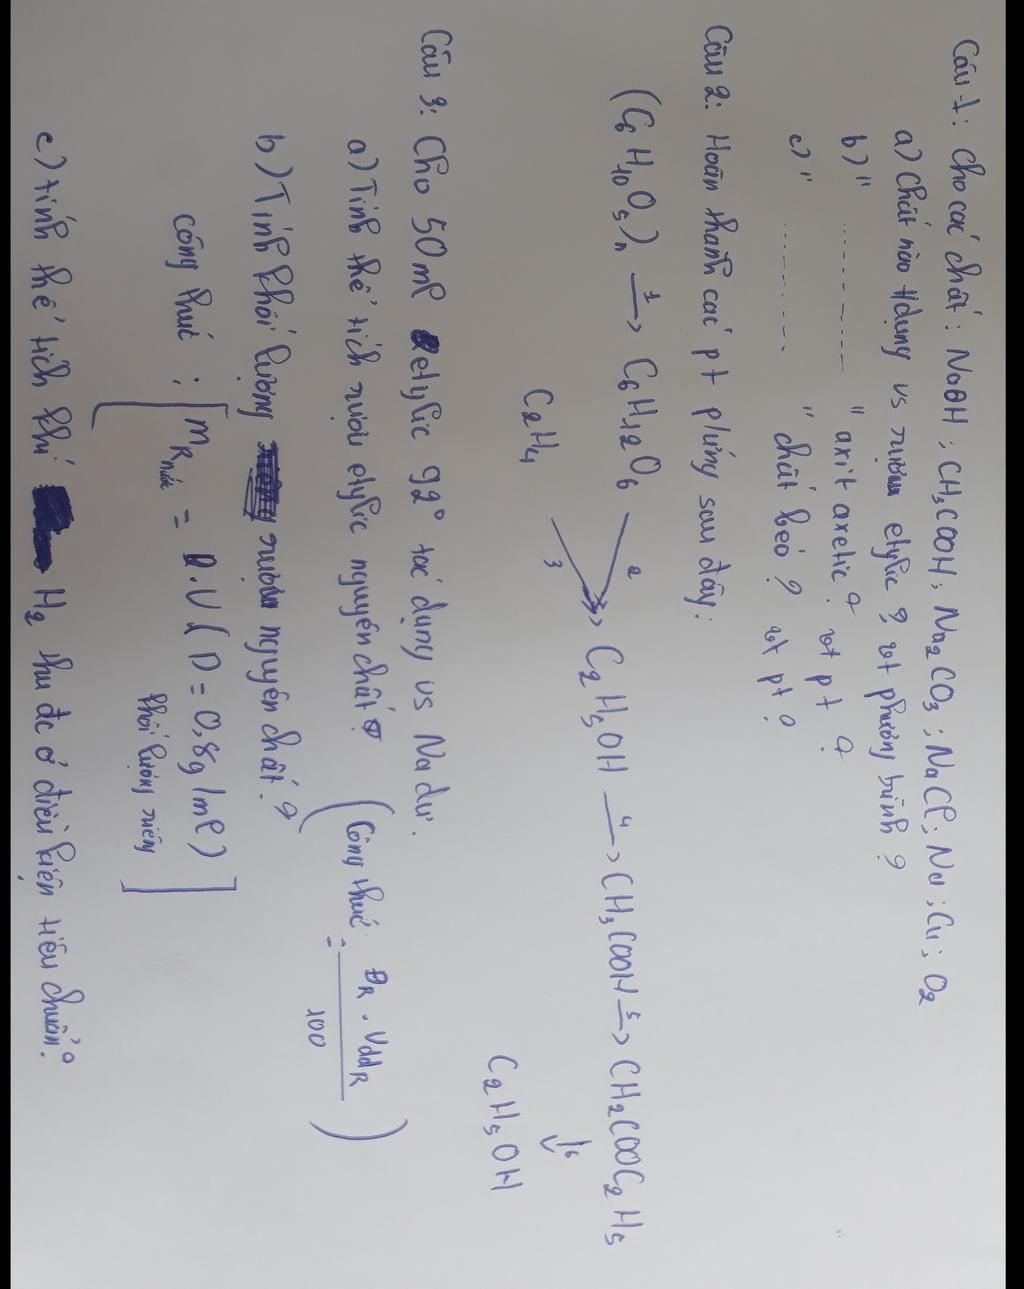 Câu 1: Cho các chất: NaOH; CH3COOH; Na2CO3; NaCl; Na; Cu; O2
a) Chất nào t/dụng vs rượu etylic? vt phương trình?
b) " ............ " axit axetic? vt pt?
c) " ............ " chất béo? vt pt?
Câu 2: Hoàn thành các pt p/ứng sau đây:
(C6H10O5)n 1→ C6H12O6 2→ C2H5OH 4→ CH3COOH 5→ CH2COOC2H5
C2H4 3→ ↓6 C2H5OH
Câu 3: Cho 50ml etylic 92° tác dụng vs Na dư.
a) Tính thể tích rượu etylic nguyên chất? (Công thức: ĐR . VddR
= 100 )
b) Tính khối lượng rượu nguyên chất?
công thức: [ mR nước = D.V ( D = 0,8g/ml )
khối lượng riêng ]
c) tính thể tích khí H2 thu đc ở điều kiện tiêu chuẩn?